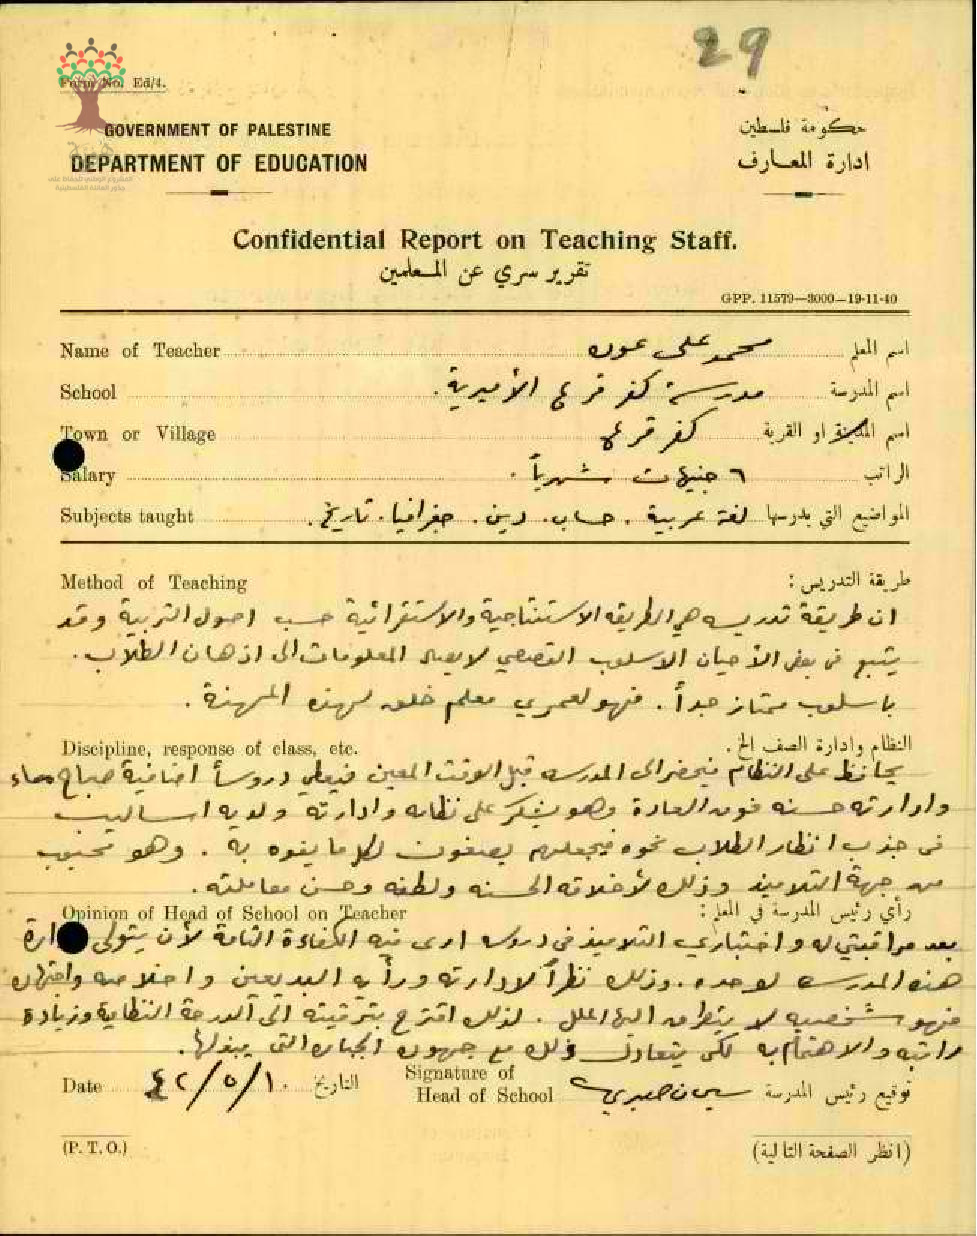 29
Form No. Ed/4.
GOVERNMENT OF PALESTINE
DEPARTMENT OF EDUCATION
حكومة فلسطين
ادارة المعارف
Confidential Report on Teaching Staff.
تقرير سري عن المعلمين
GPP. 11579—3000—19-11-40
Name of Teacher محمد علي عوده اسم المعلم
School مدرسة كفر قرع الأميرية. اسم المدرسة
Town or Village كفر قرع اسم المدينة او القرية
Salary ٦ جنيهات شهرياً. الراتب
Subjects taught لغة عربية. حساب. دين. جغرافيا. تاريخ. المواضيع التي يدرسها
Method of Teaching طريقة التدريس:
ان طريقة تدريسه هي الطريقه الاستنتاجية والاستقرائية حسب اصول التربية وقد
يتبع في بعض الأحيان الاسلوب القصصي لايصال المعلومات الى اذهان الطلاب.
باسلوب ممتاز جداً. فهو لعمري معلم خلق لهذه المهنة.
Discipline, response of class, etc. النظام وادارة الصف الخ.
يحافظ على النظام فيحضر الى المدرسه قبل الوقت المعين فيعطي دروساً اضافية صباح مساء
وادارته حسنه فوق العادة وهو يشكر على نظامه وادارته ولديه اساليب
في جذب انظار الطلاب نحوه فيجعلهم يصغون لكل ما يفوه به. وهو محبوب
من جهة التلاميذ وذلك لأخلاقه الحسنه ولطفه وحسن معاملته.
Opinion of Head of School on Teacher رأي رئيس المدرسة في المعلم:
بعد مراقبتي له واختباري التلاميذ في دروسه ارى فيه الكفاءة التامة لأن يتولى ادارة
هذه المدرسه لوحده. وذلك نظراً لادارته ورأيه واخلاصه واجتهاده
فهو شخصيه لا يتطرق اليها الملل. لذلك اقترح بترقيته الى الدرجة النظامية وزيادة
راتبه والاهتمام به لكي يتعادل ذلك مع جهوده الجباره التي يبذلها.
Date ٤٢/٥/١٠ التاريخ
Signature of
Head of School سليمان صبري توقيع رئيس المدرسة
(P. T. O.) (انظر الصفحة التالية)